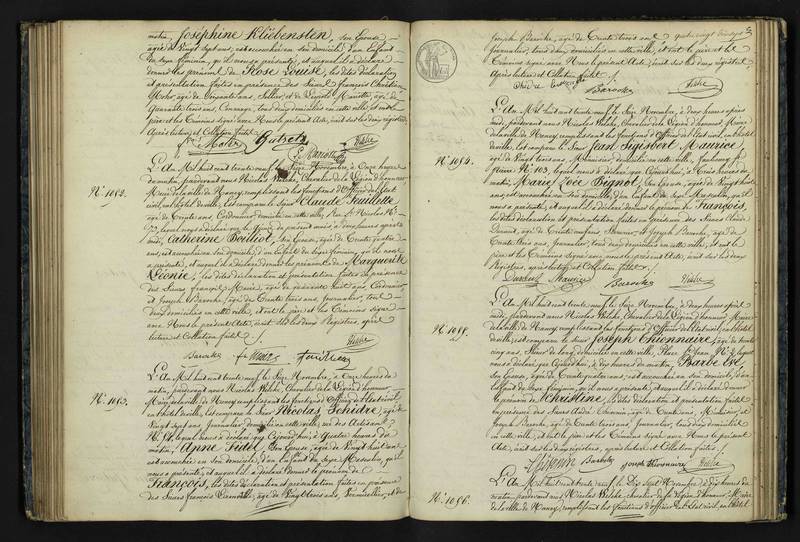 matin, Joséphine Klübenstein, son Epouse
âgée de Vingt sept ans, est accouchée en son domicile d'un Enfant
du sexe féminin, qu'il nous a présenté, et auquel il a déclaré
donner les prénoms de Rose Louise, les dites déclaration
et présentation faites en présence des Sieurs François Christian
âgé de Cinquante ans, Sellier, et de
quarante trois ans, tous deux domiciliés en cette ville, et ont le
père et les témoins signé avec Nous le présent Acte, écrit sur les deux registres
Après lecture et Collation faites.
N° 1092.
L'An Mil huit cent trente neuf, le Seize Novembre, à Onze heures
du matin, pardevant nous Nicolas Welche, Chevalier de la Légion d'honneur
Maire de la ville de Nancy, remplissant les fonctions d'Officier de l'Etat
civil, en l'hôtel de ville, Est comparu le Sieur Claude Feuillette
âgé de Trente ans, Cordonnier, domicilié en cette ville, Rue St Nicolas N°
lequel nous a déclaré que le présent mois à deux heures après
midi, Catherine Doilliot, Son Epouse, âgée de Trente quatre
ans, est accouchée en son domicile, d'un Enfant du Sexe féminin, qu'il nous
a présenté, et auquel il a déclaré donner les prénoms de Marguerite
Léonie, les dites déclaration et présentation faites en présence
des Sieurs françois Marie, âgé de quarante huit ans, Cordonnier
et Joseph Baroche, âgé de Trente trois ans, Journalier, tous
deux domiciliés en cette ville, et ont le père et les témoins signé
avec Nous le présent Acte, écrit sur les deux Registres, après
lecture et Collation faites.
Baroche
N° 1093.
L'An Mil huit cent trente neuf, le Seize Novembre, à Onze heures du
matin, pardevant nous Nicolas Welche, Chevalier de la Légion d'honneur
Maire de la ville de Nancy, remplissant les fonctions d'Officier de l'Etat civil
en l'hôtel de ville, Est comparu le Sieur Nicolas Schidre, âgé de
Vingt sept ans, Journalier, domicilié en cette ville, rue des Artisans
N° 14, lequel nous a déclaré que Cejourd'hui, à quatre heures du
matin, Anne Jutel, Son Epouse, âgée de Vingt huit ans
est accouchée en son domicile, d'un Enfant du Sexe Masculin, qu'il
nous a présenté, et auquel il a déclaré donner le prénom de
François, les dites déclaration et présentation faites en présence
des Sieurs françois âgé de Vingt trois ans, Vermicellier, et de
Joseph Baroche, âgé de Trente trois ans
Journalier, tous deux domiciliés en cette ville, et ont le père et les
témoins signé avec Nous le présent Acte, écrit sur les deux registres
Après lecture et Collation faites.
Baroche
N° 1094.
L'An Mil huit cent trente neuf, le Seize Novembre, à deux heures après
midi, pardevant nous Nicolas Welche, Chevalier de la Légion d'honneur, Maire
de la ville de Nancy, remplissant les fonctions d'Officier de l'Etat civil, en l'hôtel
de ville, Est comparu le Sieur Jean Sigisbert Maurice,
âgé de Vingt trois ans, domicilié en cette ville, faubourg
N° 103, lequel nous a déclaré que Cejourd'hui, à trois heures du
matin, Marie Zoée Pignol, Son Epouse, âgée de Vingt huit
ans, est accouchée en son domicile, d'un Enfant du Sexe Masculin, qu'il
nous a présenté, et auquel il a déclaré donner le prénom de François,
les dites déclaration et présentation faites en présence des Sieurs Claude
Durand, âgé de et Joseph Baroche, âgé de
Trente trois ans, Journalier, tous deux domiciliés en cette ville, et ont le
père et les témoins Signé avec nous le présent Acte, écrit sur les deux
Registres, après lecture et Collation faites.
Maurice Baroche
N° 1095.
L'An Mil huit cent trente neuf, le Seize Novembre, à deux heures après
midi, pardevant nous Nicolas Welche, Chevalier de la Légion d'honneur, Maire
de la ville de Nancy, remplissant les fonctions d'Officier de l'Etat civil, en l'hôtel
de ville, est comparu le Sieur Joseph Thionnaire, âgé de trente
cinq ans, Scieur de long, domicilié en cette ville, Place St Jean N° 2, lequel
nous a déclaré que Cejourd'hui, à dix heures du matin, Barbe Evé
son Epouse, âgée de Trente quatre ans, est accouchée en son domicile, d'un
Enfant du Sexe féminin, qu'il nous a présenté, et auquel il a déclaré donner
le prénom de Christine, les dites déclaration et présentation faites
en présence des Sieurs âgé de Trente ans, Menuisier, et
Joseph Baroche, âgé de trente trois ans, Journalier, tous deux domiciliés
en cette ville, et ont le père et les témoins signé avec Nous le présent
Acte, écrit sur les deux registres, après lecture et Collation faites.
Baroche Joseph Thionnaire
N° 1096.
L'An Mil huit cent trente neuf, le Dix Sept Novembre, à dix heures du
matin, pardevant nous Nicolas Welche, Chevalier de la Légion d'honneur, Maire
de la ville de Nancy, remplissant les fonctions d'officier de l'Etat civil, en l'hôtel